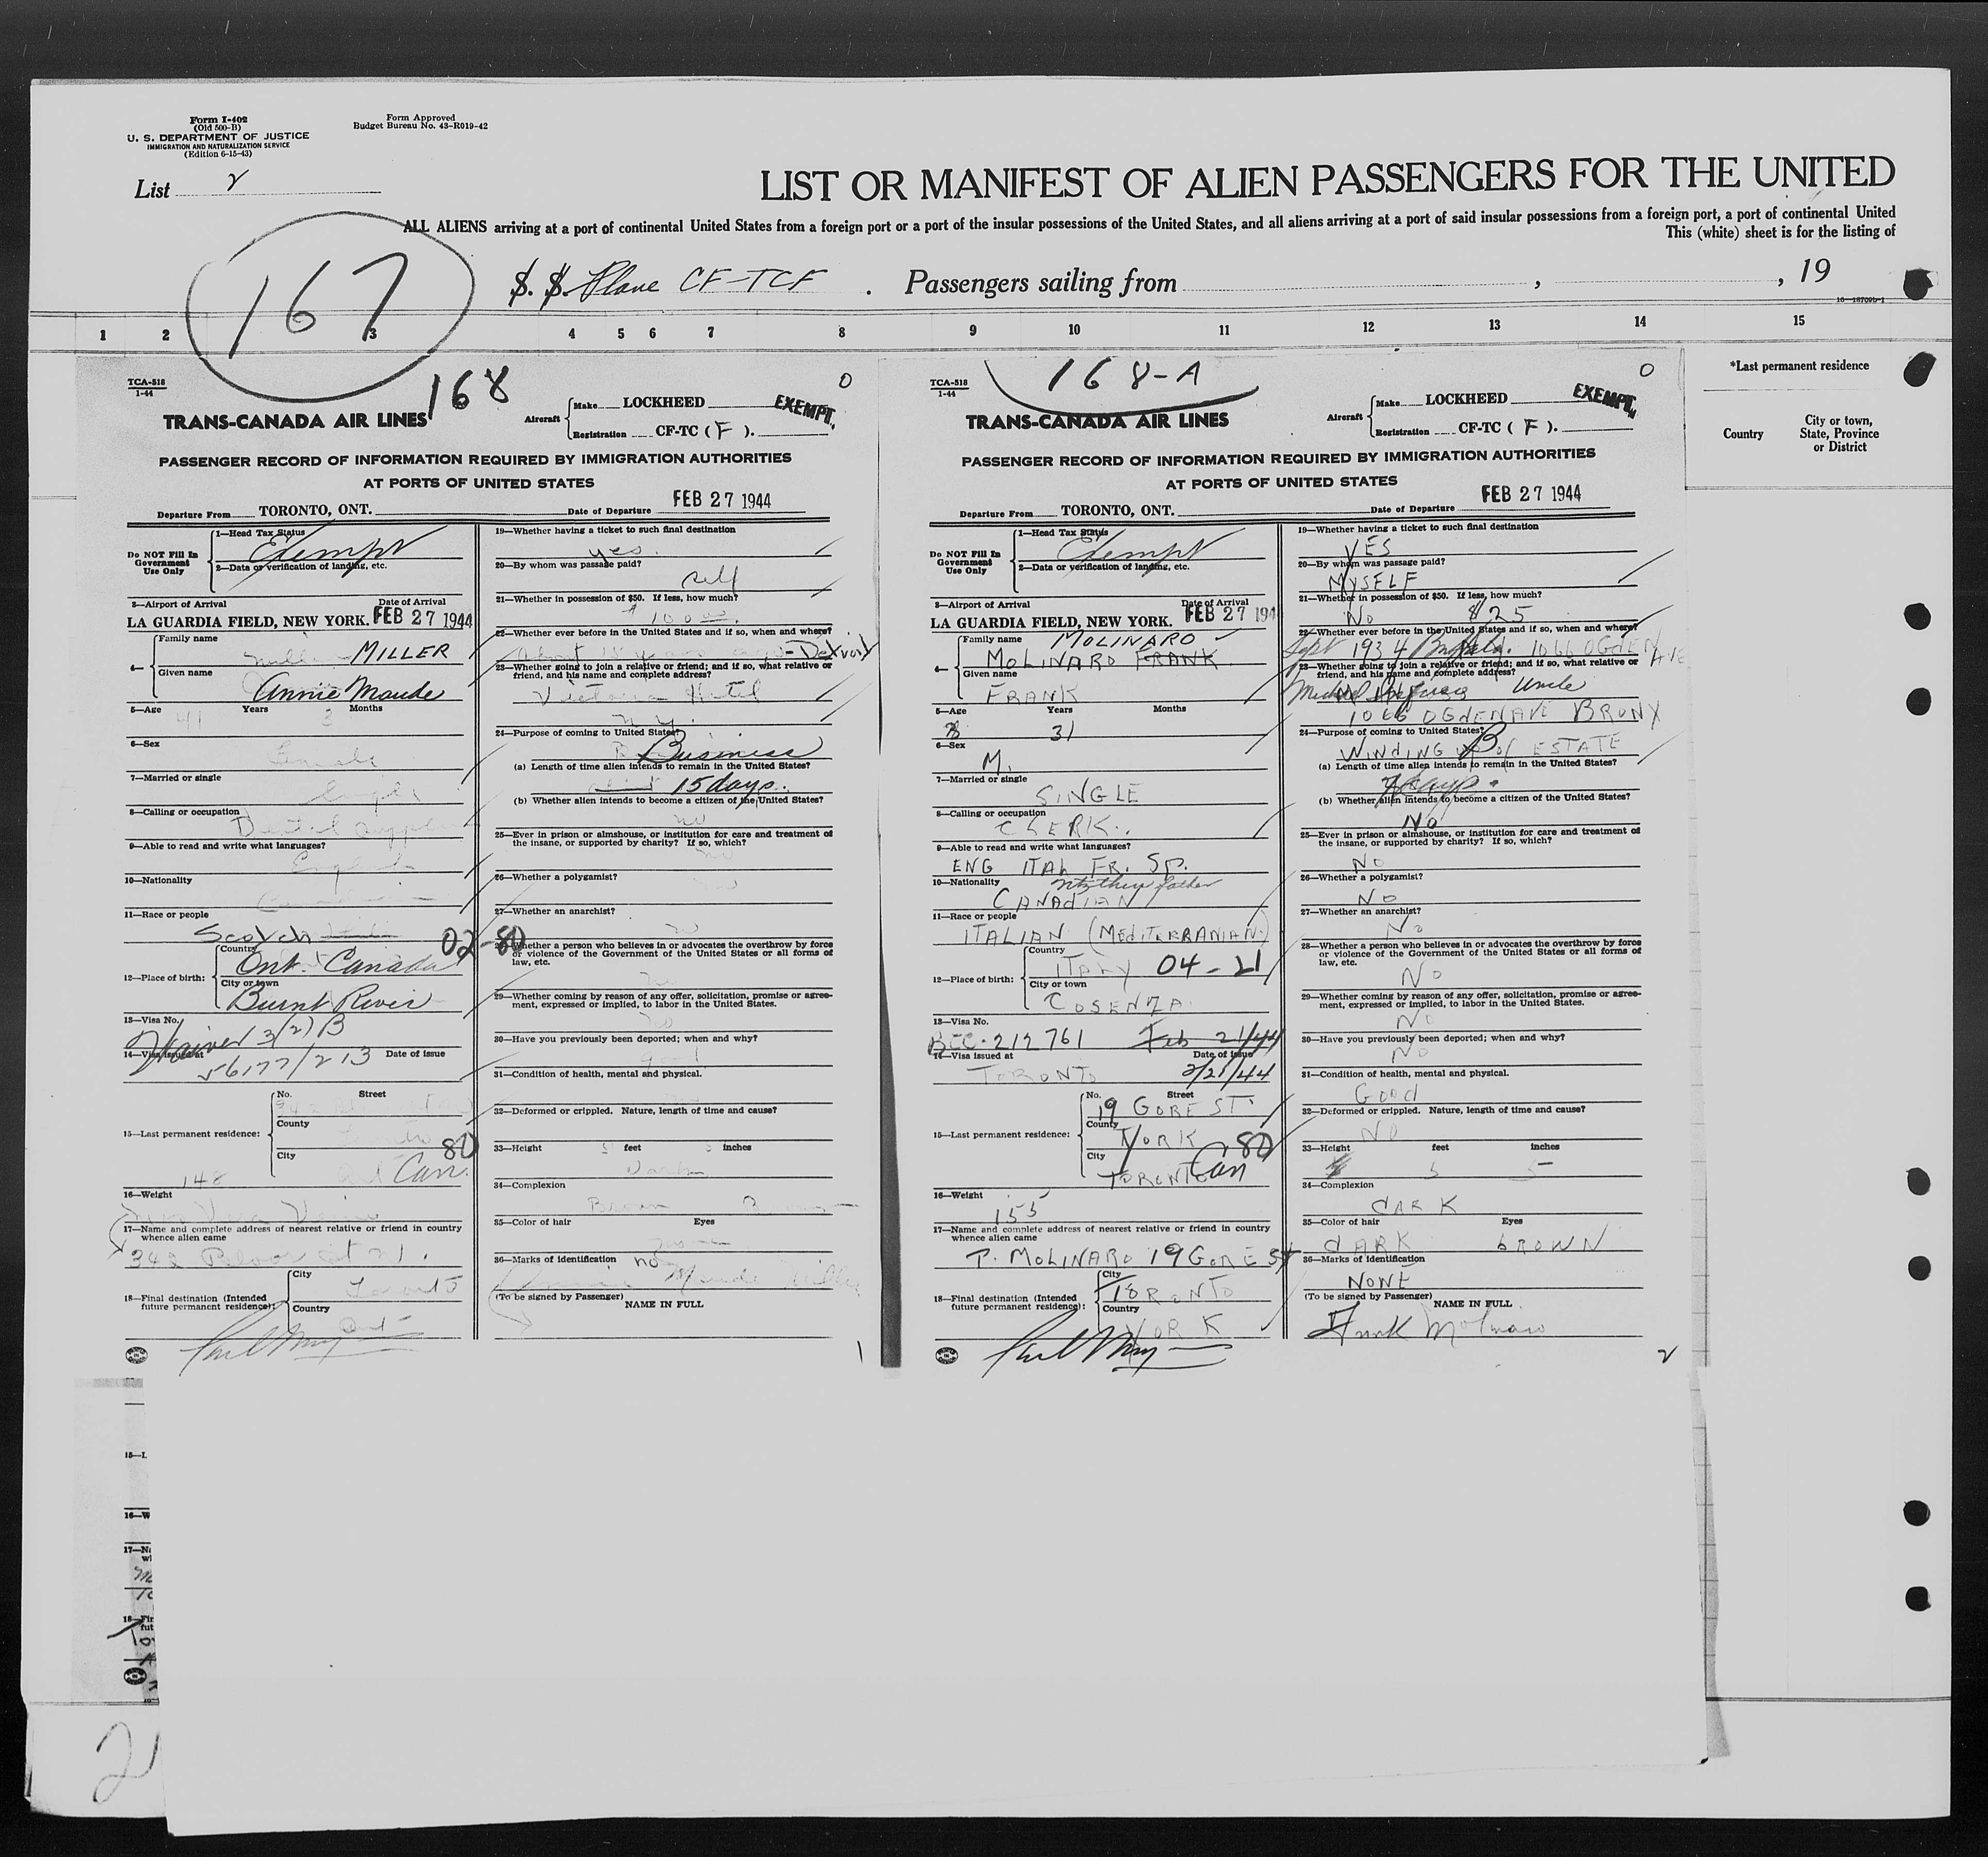 Form I-402
(Old 500-B)
U. S. DEPARTMENT OF JUSTICE
IMMIGRATION AND NATURALIZATION SERVICE
(Edition 6-15-43)
Form Approved
Budget Bureau No. 43-R019-42
List 2
LIST OR MANIFEST OF ALIEN PASSENGERS FOR THE UNITED
ALL ALIENS arriving at a port of continental United States from a foreign port or a port of the insular possessions of the United States, and all aliens arriving at a port of said insular possessions from a foreign port, a port of continental United
This (white) sheet is for the listing of
167
S. S. Plane CF-TCF . Passengers sailing from , , 19
16—18709b-1
1 2 3 4 5 6 7 8 9 10 11 12 13 14 15
*Last permanent residence
Country
City or town, State, Province or District
TCA-518
1-44
168
0
TRANS-CANADA AIR LINES
Aircraft
Make LOCKHEED
Registration CF-TC ( F ).
EXEMPT
PASSENGER RECORD OF INFORMATION REQUIRED BY IMMIGRATION AUTHORITIES
AT PORTS OF UNITED STATES
Departure From TORONTO, ONT. Date of Departure FEB 27 1944
Do NOT Fill In Government Use Only
1—Head Tax Status
Exempt
2—Data or verification of landing, etc.
3—Airport of Arrival Date of Arrival
LA GUARDIA FIELD, NEW YORK. FEB 27 1944
4—
Family name
MILLER
Given name
Annie Maude
5—Age Years Months
41 3
6—Sex
Female
7—Married or single
Single
8—Calling or occupation
Dental
9—Able to read and write what languages?
English
10—Nationality
Canadian
11—Race or people
Scotch
02-80
12—Place of birth:
Country
Ont. Canada
City or town
Burnt River
13—Visa No.
Waiver 3/2) B
14—Visa issued at Date of issue
56177/213
15—Last permanent residence:
No. Street
County
City
80
Can.
148
16—Weight
17—Name and complete address of nearest relative or friend in country
whence alien came
342 Bloor
18—Final destination (Intended
future permanent residence):
City
Toronto
Country
Ont
19—Whether having a ticket to such final destination
yes.
20—By whom was passage paid?
Self
21—Whether in possession of $50. If less, how much?
$100
22—Whether ever before in the United States and if so, when and where?
About years ago - Detroit
23—Whether going to join a relative or friend; and if so, what relative or
friend, and his name and complete address?
Victoria Hotel
N.Y.
24—Purpose of coming to United States?
Business
(a) Length of time alien intends to remain in the United States?
15 days.
(b) Whether alien intends to become a citizen of the United States?
no
25—Ever in prison or almshouse, or institution for care and treatment of
the insane, or supported by charity? If so, which?
no
26—Whether a polygamist?
no
27—Whether an anarchist?
no
28—Whether a person who believes in or advocates the overthrow by force
or violence of the Government of the United States or all forms of
law, etc.
no
29—Whether coming by reason of any offer, solicitation, promise or agree-
ment, expressed or implied, to labor in the United States.
no
30—Have you previously been deported; when and why?
good
31—Condition of health, mental and physical.
no
32—Deformed or crippled. Nature, length of time and cause?
33—Height feet inches
5
34—Complexion
Brown
35—Color of hair Eyes
36—Marks of identification no
Annie Maude Miller
(To be signed by Passenger)
NAME IN FULL
1
TCA-518
1-44
168-A
0
TRANS-CANADA AIR LINES
Aircraft
Make LOCKHEED
Registration CF-TC ( F ).
EXEMPT
PASSENGER RECORD OF INFORMATION REQUIRED BY IMMIGRATION AUTHORITIES
AT PORTS OF UNITED STATES
Departure From TORONTO, ONT. Date of Departure FEB 27 1944
Do NOT Fill In Government Use Only
1—Head Tax Status
Exempt
2—Data or verification of landing, etc.
3—Airport of Arrival Date of Arrival
LA GUARDIA FIELD, NEW YORK. FEB 27 194
4—
Family name
MOLINARO
MOLINARO FRANK
Given name
FRANK
5—Age Years Months
31
6—Sex
M.
7—Married or single
SINGLE
8—Calling or occupation
CLERK.
9—Able to read and write what languages?
ENG ITAL FR. SP.
10—Nationality
ntz thru father
CANADIAN
11—Race or people
ITALIAN (MEDITERRANIAN)
12—Place of birth:
Country
ITALY 04-21
City or town
COSENZA
13—Visa No.
BCC. 212761 Feb 21/44
14—Visa issued at Date of issue
TORONTO 2/21/44
15—Last permanent residence:
No. Street
19 GORE ST.
County
YORK
80
City
TORONTO Can
16—Weight
155
17—Name and complete address of nearest relative or friend in country
whence alien came
T. MOLINARO 19 GORE ST
18—Final destination (Intended
future permanent residence):
City
TORONTO
Country
YORK
19—Whether having a ticket to such final destination
YES
20—By whom was passage paid?
MYSELF
21—Whether in possession of $50. If less, how much?
No $25
22—Whether ever before in the United States and if so, when and where?
Sept 1934 Buffalo. 1066 OGDEN AVE
23—Whether going to join a relative or friend; and if so, what relative or
friend, and his name and complete address?
Uncle
1066 OGDEN AVE BRONX
24—Purpose of coming to United States?
WINDING UP of ESTATE
B
(a) Length of time alien intends to remain in the United States?
7 days.
(b) Whether alien intends to become a citizen of the United States?
No
25—Ever in prison or almshouse, or institution for care and treatment of
the insane, or supported by charity? If so, which?
No
26—Whether a polygamist?
No
27—Whether an anarchist?
No
28—Whether a person who believes in or advocates the overthrow by force
or violence of the Government of the United States or all forms of
law, etc.
No
29—Whether coming by reason of any offer, solicitation, promise or agree-
ment, expressed or implied, to labor in the United States.
No
30—Have you previously been deported; when and why?
No
31—Condition of health, mental and physical.
Good
32—Deformed or crippled. Nature, length of time and cause?
NO
33—Height feet inches
5 5
34—Complexion
DARK
35—Color of hair Eyes
DARK BROWN
36—Marks of identification
NONE
(To be signed by Passenger)
NAME IN FULL
Frank Molinaro
2
15—L
16—W
17—N
18—Fir
fut
2